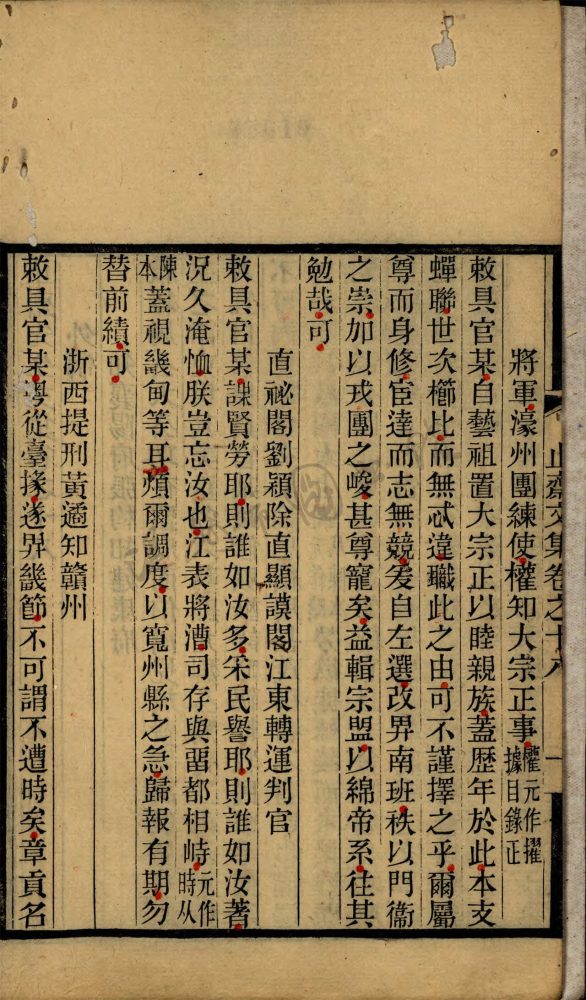 止齋文集卷之十八
將軍濠州團練使權知大宗正事權元作擢據目錄正
敕具官某自藝祖置大宗正以睦親族蓋歷年於此本支
蟬聯世次櫛比而無忒違職此之由可不謹擇之乎爾屬
尊而身修宦達而志無競爰自左選改畀南班秩以門衞
之崇加以戎團之峻甚尊寵矣益輯宗盟以綿帝系往其
勉哉可
直祕閣劉潁除直顯謨閣江東轉運判官
敕具官某課賢勞耶則誰如汝多采民譽耶則誰如汝著
況久淹恤朕豈忘汝也江表將漕司存與畱都相峙元作時从
陳本蓋視畿甸等耳煩爾調度以寬州縣之急歸報有期勿
替前績可
浙西提刑黃遹知贛州
敕具官某粵從臺掾遂畀畿節不可謂不遭時矣章貢名